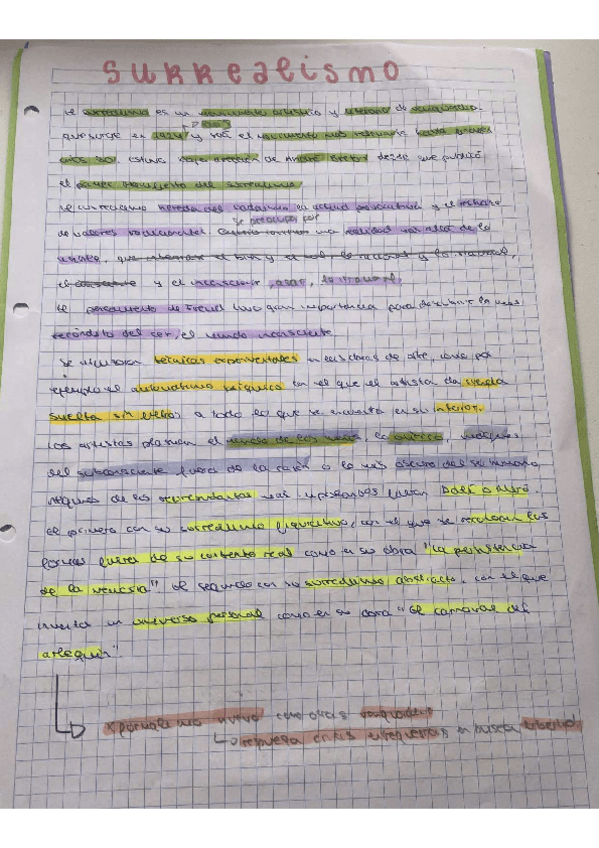 SURREALISMO
El surrealismo es un movimiento artístico y literario de vanguardia
que surge en 1924 y será el movimiento más hasta
años 30, estuvo bajo dirección de André Breton desde que publicó
el primer manifiesto del surrealismo.
El surrealismo hereda del dadaísmo la actitud y el rechazo
se preocupa por
de valores tradicionales una realidad más allá de lo
visible, que el bien y el mal, lo natural y lo irracional,
y el inconsciente, azar, lo irracional.
El pensamiento de Freud tuvo gran importancia para descubrir lo más
recóndito del ser, el mundo inconsciente.
Se utilizaron técnicas experimentales en las obras de arte, como por
ejemplo el automatismo psíquico con el que el artista da rienda
suelta sin filtros a todo lo que se encuentra en su interior.
Los artistas plasman el mundo de los sueños, lo onírico, imágenes
del subconsciente fuera de la razón o lo más oscuro del ser humano
de los más importantes fueron Dalí o Miró.
El primero con su surrealismo figurativo, con el que se recolocan las
formas fuera de su contexto real como en su obra "La persistencia
de la memoria". El segundo con su surrealismo abstracto, con el que
inventa un universo personal como en su obra "El carnaval del
arlequín".
nuevo como otras vanguardias
respuesta crisis en busca libertad